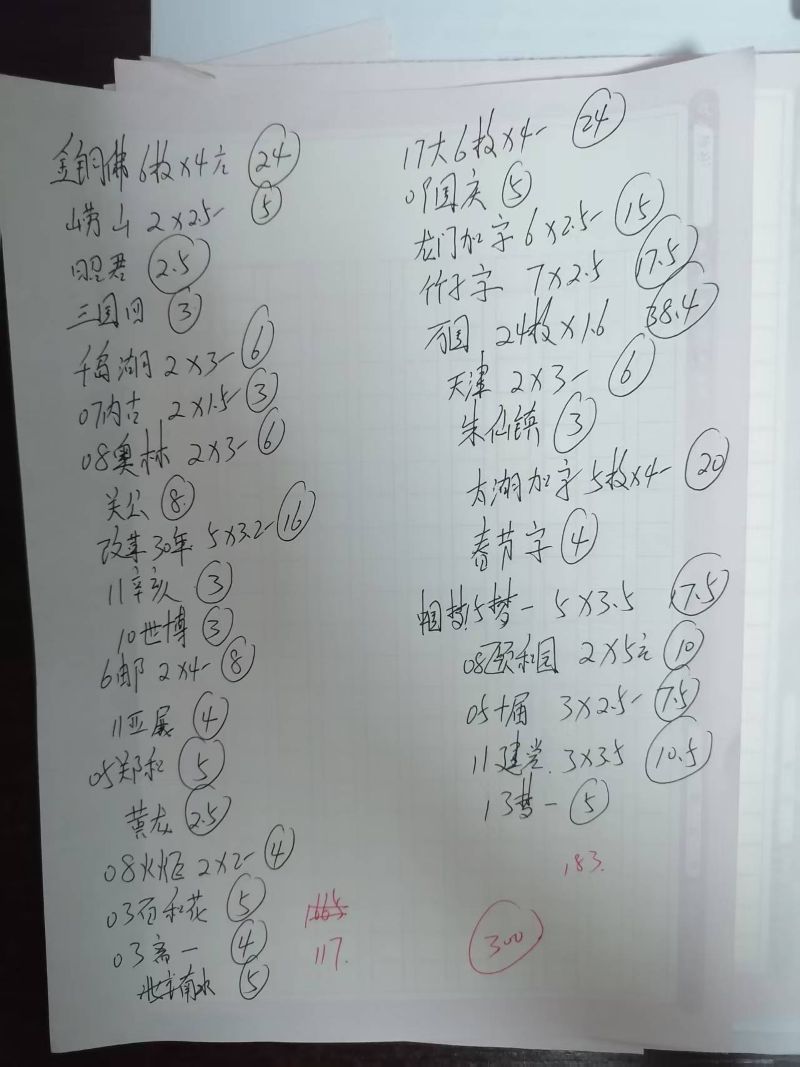 金铜佛 6枚×4元 24
崂山 2×2.5- 5
昭君 2.5
三国四 3
千岛湖 2×3- 6
07内古 2×1.5- 3
08奥林 2×3- 6
关公 8
改革30年 5×3.2- 16
11辛亥 3
10世博 3
6邮 2×4- 8
11亚展 4
05郑和 5
黄龙 2.5
08火炬 2×2- 4
03百和花 5
03高一 4
5
117.
17大6枚×4- 24
09国庆 5
龙门加字 6×2.5- 15
竹子字 7×2.5 17.5
万国 24枚×1.6 38.4
天津 2×3- 6
朱仙镇 3
太湖加字5枚×4- 20
春节字 4
梦一 5×3.5 17.5
08颐和园 2×5元 10
05十届 3×2.5- 7.5
11建党.3×3.5 10.5
13梦一 5
183.
300